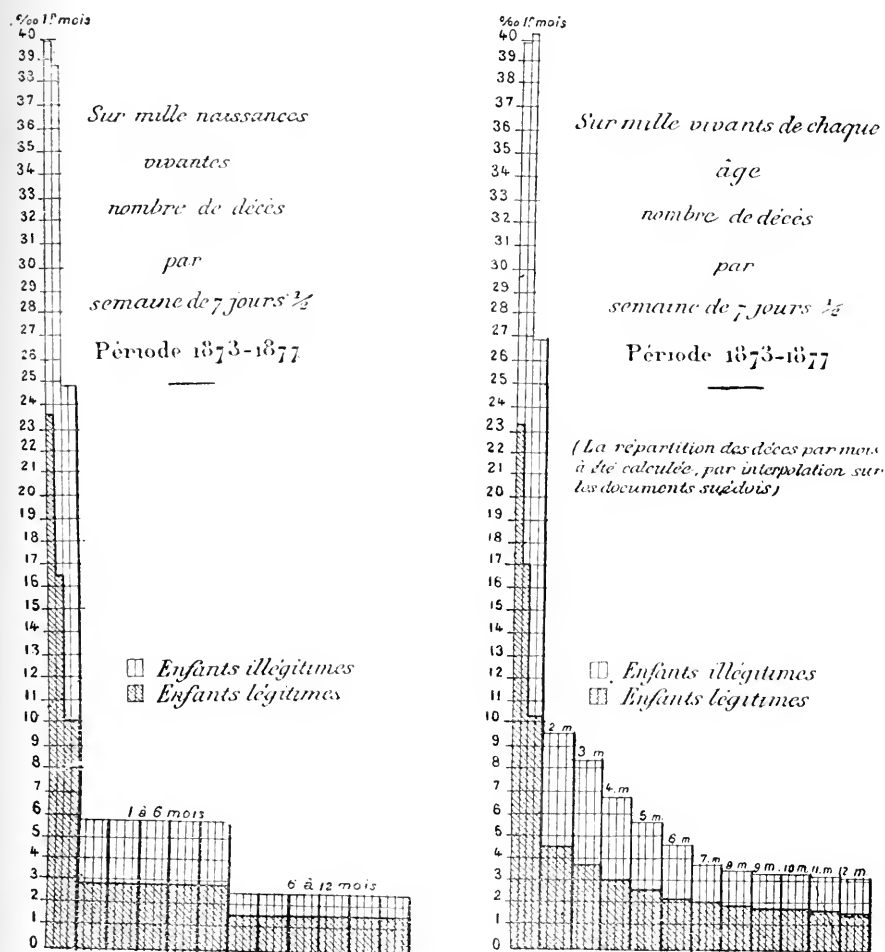 ‰ 1er mois
40
39
33
37
36
35
34
33
32
31
30
29
28
27
26
25
24
23
22
21
20
19
18
17
16
15
14
13
12
11
10
9
8
7
6
5
4
3
2
1
0
Sur mille naissances
vivantes
nombre de décès
par
semaine de 7 jours ½
Période 1873-1877
Enfants illégitimes
Enfants légitimes
1 à 6 mois
6 à 12 mois
‰ 1er mois
40
39
38
37
36
35
34
33
32
31
30
29
28
27
26
25
24
23
22
21
20
19
18
17
16
15
14
13
12
11
10
9
8
7
6
5
4
3
2
1
0
Sur mille vivants de chaque
âge
nombre de décès
par
semaine de 7 jours ½
Période 1873-1877
(La répartition des décès par mois
à été calculée, par interpolation sur
les documents suédois)
Enfants illégitimes
Enfants légitimes
2 m
3 m
4 m
5 m
6 m
7 m
8 m
9 m
10 m
11 m
12 m